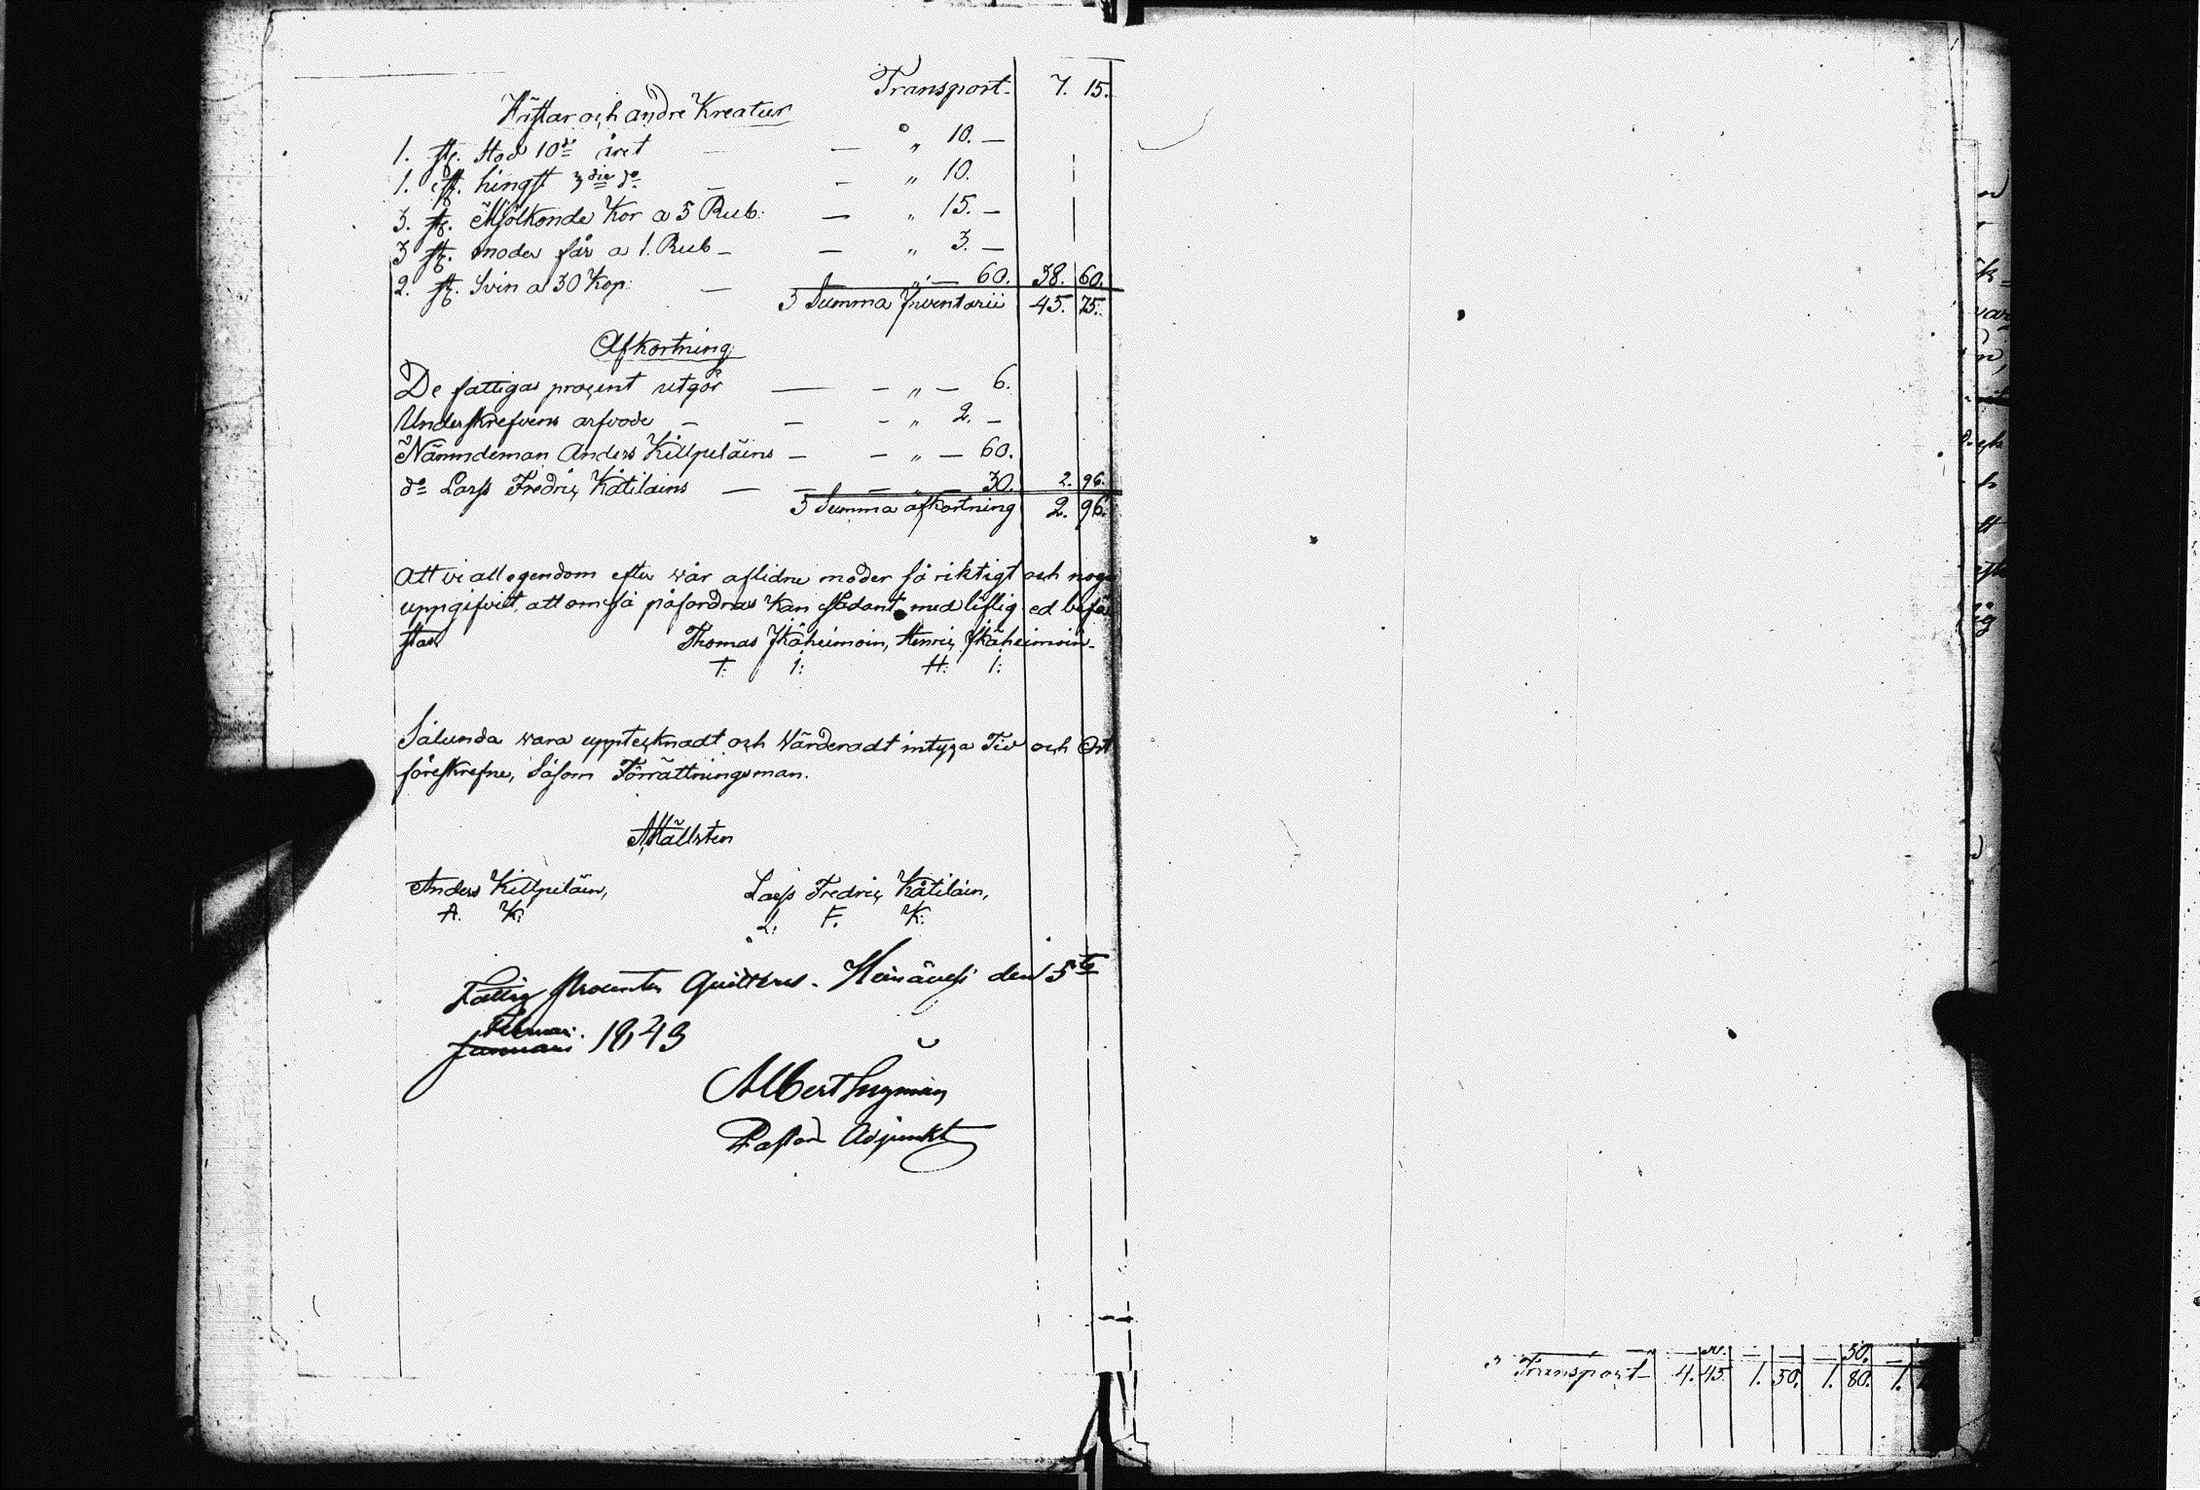 Transport. 7. 15.
Hästar och andre Kreatur
1. st. Stod 10de året — — „ 10. —
1. st. hingst 3die do — — „ 10.
3. st. Mjölkande Kor a 5 Rub: — „ 15. —
3 st. moder får a 1. Rub — — „ 3. —
2. st. Svin a 30 Kop: — „ — 60. 38. 60.
Summa Inventarii 45. 75.
Afkortning
De fattigas procent utgör — — „ — 6.
Underskrefvens arfvode — — — „ 2. —
Nämndeman Anders Killpeläins — — „ — 60.
do Lars Fredric Kåtilains — — — „ — 30. 2. 96.
Summa afkortning 2. 96.
Att vi all egendom efter vår aflidne moder så riktigt och noga
uppgifvit, att om så påfordras kan sådant med liflig ed befä
stas Thomas Ikäheimoin, Henric Ikäheimoin.
T: I: H: I:
Sålunda vara upptecknadt och Värderadt intyga Tid och Ort
föreskrefne, Såsom Förrättningsman.
Anders Killpeläin, Lars Fredric Kåtilain,
A. K: L: F. K:
Fattig Procenten Quitteras. Heinävesi den 5te
Februari
Januari 1843
Albert
Pastors Adjunkt
50.
Transport 4. 45 1. 50. 1. 80. 1.